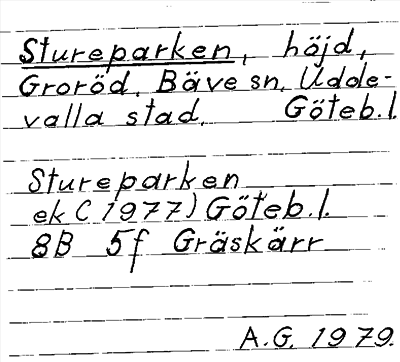 Stureparken, höjd,
Groröd, Bäve sn, Udde-
valla stad, Göteb.l.
Stureparken
ek (1977) Göteb.l.
8B 5f Gräskärr
A.G. 1979.